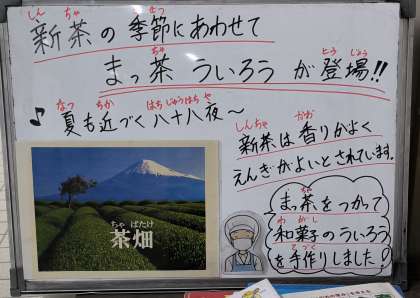 新茶の季節にあわせて
まっ茶ういろうが登場!!
♪夏も近づく八十八夜～
新茶は香りがよく
えんぎがよいとされています。
茶畑
まっ茶をつかって
和菓子のういろう
を手作りしました♪
しん ちゃ き せつ
ちゃ とう じょう
なつ ちか はちじゅうはち や
しんちゃ かお
ちゃ ばたけ
ちゃ
わ が し
て づく